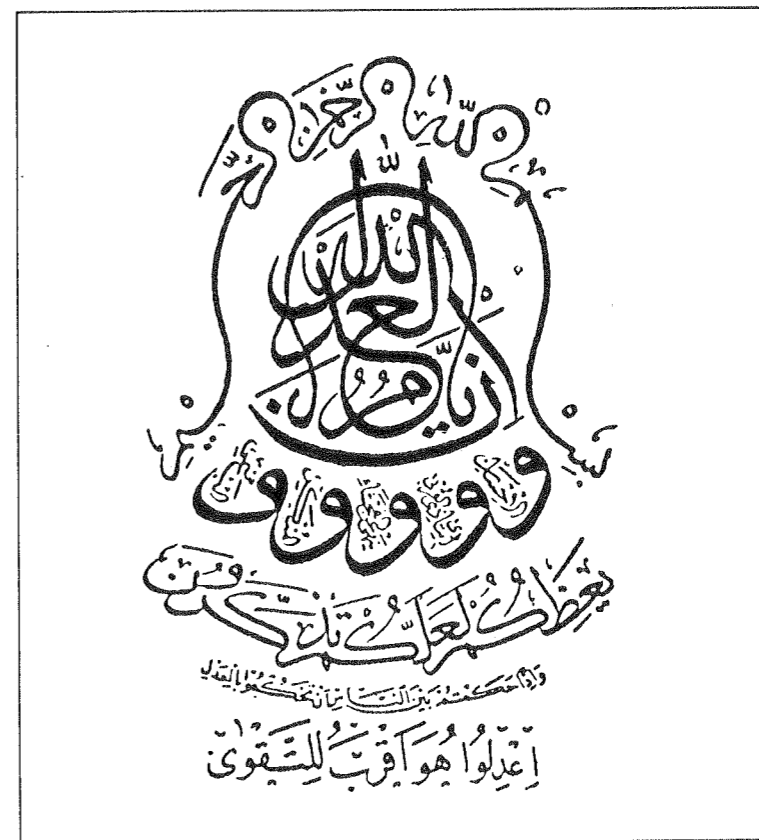 بسم الله الرحمن الرحيم
ان الله يأمر بالعدل
يَعِظُكُمْ لَعَلَّكُمْ تَذَكَّرُونَ
وَإِذَا حَكَمْتُمْ بَيْنَ النَّاسِ أَنْ تَحْكُمُوا بِالْعَدْلِ
اِعْدِلُوا هُوَ اَقْرَبُ لِلتَّقْوٰى